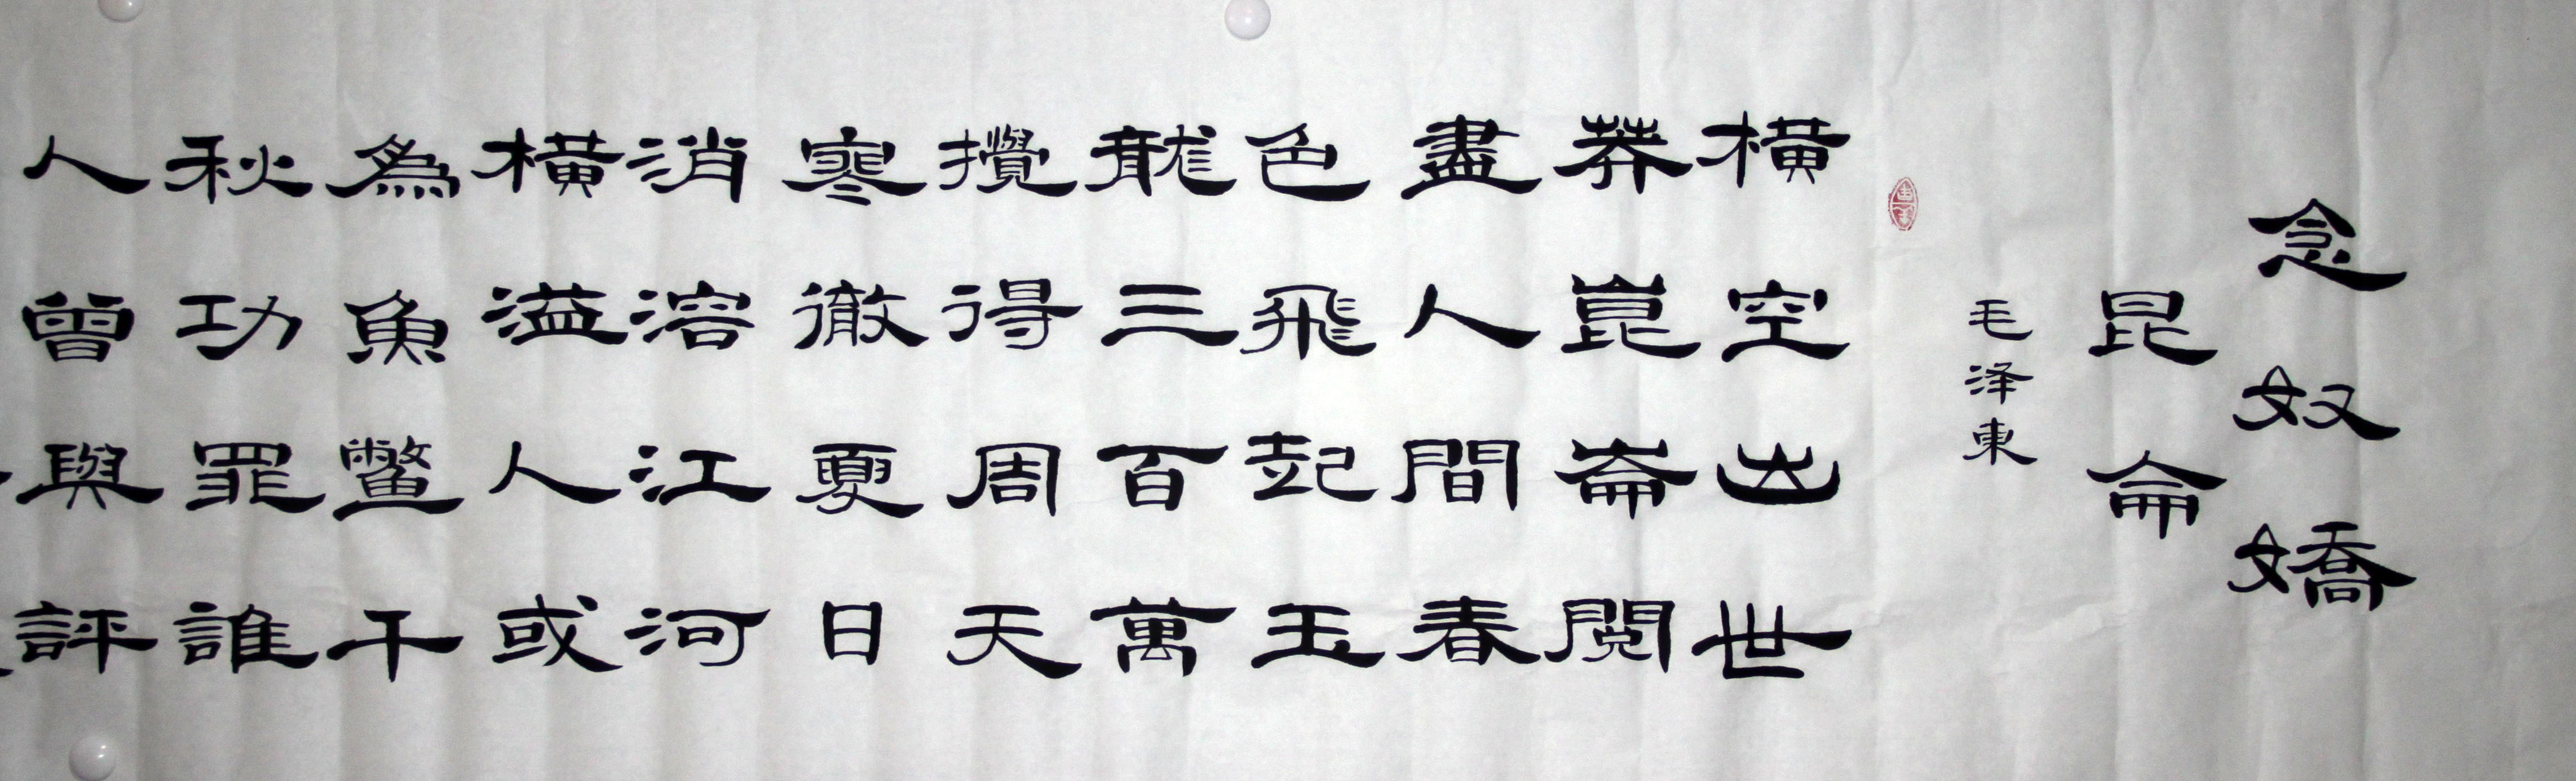 念奴嬌
昆侖
毛泽東
橫空出世
莽崑崙閱
盡人間春
色飛起玉
龍三百萬
攪得周天
寒徹夏日
消溶江河
橫溢人或
為魚鳖千
秋功罪誰
人曾與評